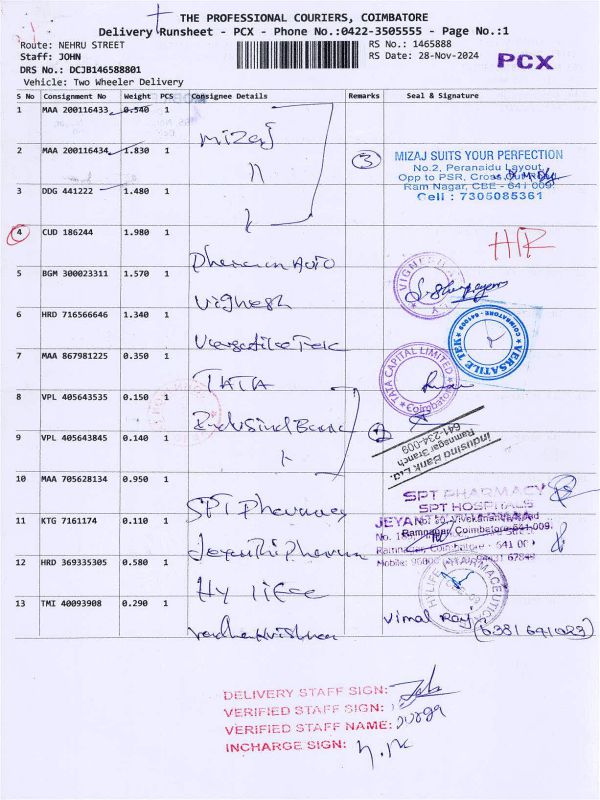 THE PROFESSIONAL COURIERS, COIMBATORE
Delivery Runsheet - PCX - Phone No.:0422-3505555 - Page No.:1
Route: NEHRU STREET
RS No.: 1465888
Staff: JOHN
RS Date: 28-Nov-2024
PCX
DRS No.: DCJB146588801
Vehicle: Two Wheeler Delivery
S No Consignment No Weight PCS Consignee Details Remarks Seal & Signature
1 MAA 200116433 0.540 1 Mizaj
2 MAA 200116434 1.830 1 " 3
MIZAJ SUITS YOUR PERFECTION
No.2, Peranaidu Layout,
Opp to PSR, Cross Cut Road
Ram Nagar, CBE - 641 009.
Cell : 7305085361
3 DDG 441222 1.480 1
4 CUD 186244 1.980 1 Auto
5 BGM 300023311 1.570 1 Vighesh
6 HRD 716566646 1.340 1 Versatile Tek
VERSATILE TEK
COIMBATORE - 641009
7 MAA 867981225 0.350 1 TATA
TATA CAPITAL LIMITED
Coimbatore
8 VPL 405643535 0.150 1 Indusind Bank
9 VPL 405643845 0.140 1
Indusind Bank Ltd.
Ramnagar Branch
641-234-009
10 MAA 705628134 0.950 1 SPT Pharmacy
SPT PHARMACY
SPT HOSPITALS
11 KTG 7161174 0.110 1 Jeyanthi Pharma
Ramnagar, Coimbatore-641 009.
Ramnagar, Coimbatore - 641 00
12 HRD 369335305 0.580 1 Hy life
13 TMI 40093908 0.290 1 radhakrishnan Vimal Raj (6381691029)
DELIVERY STAFF SIGN:
VERIFIED STAFF SIGN:
VERIFIED STAFF NAME: Durga
INCHARGE SIGN: